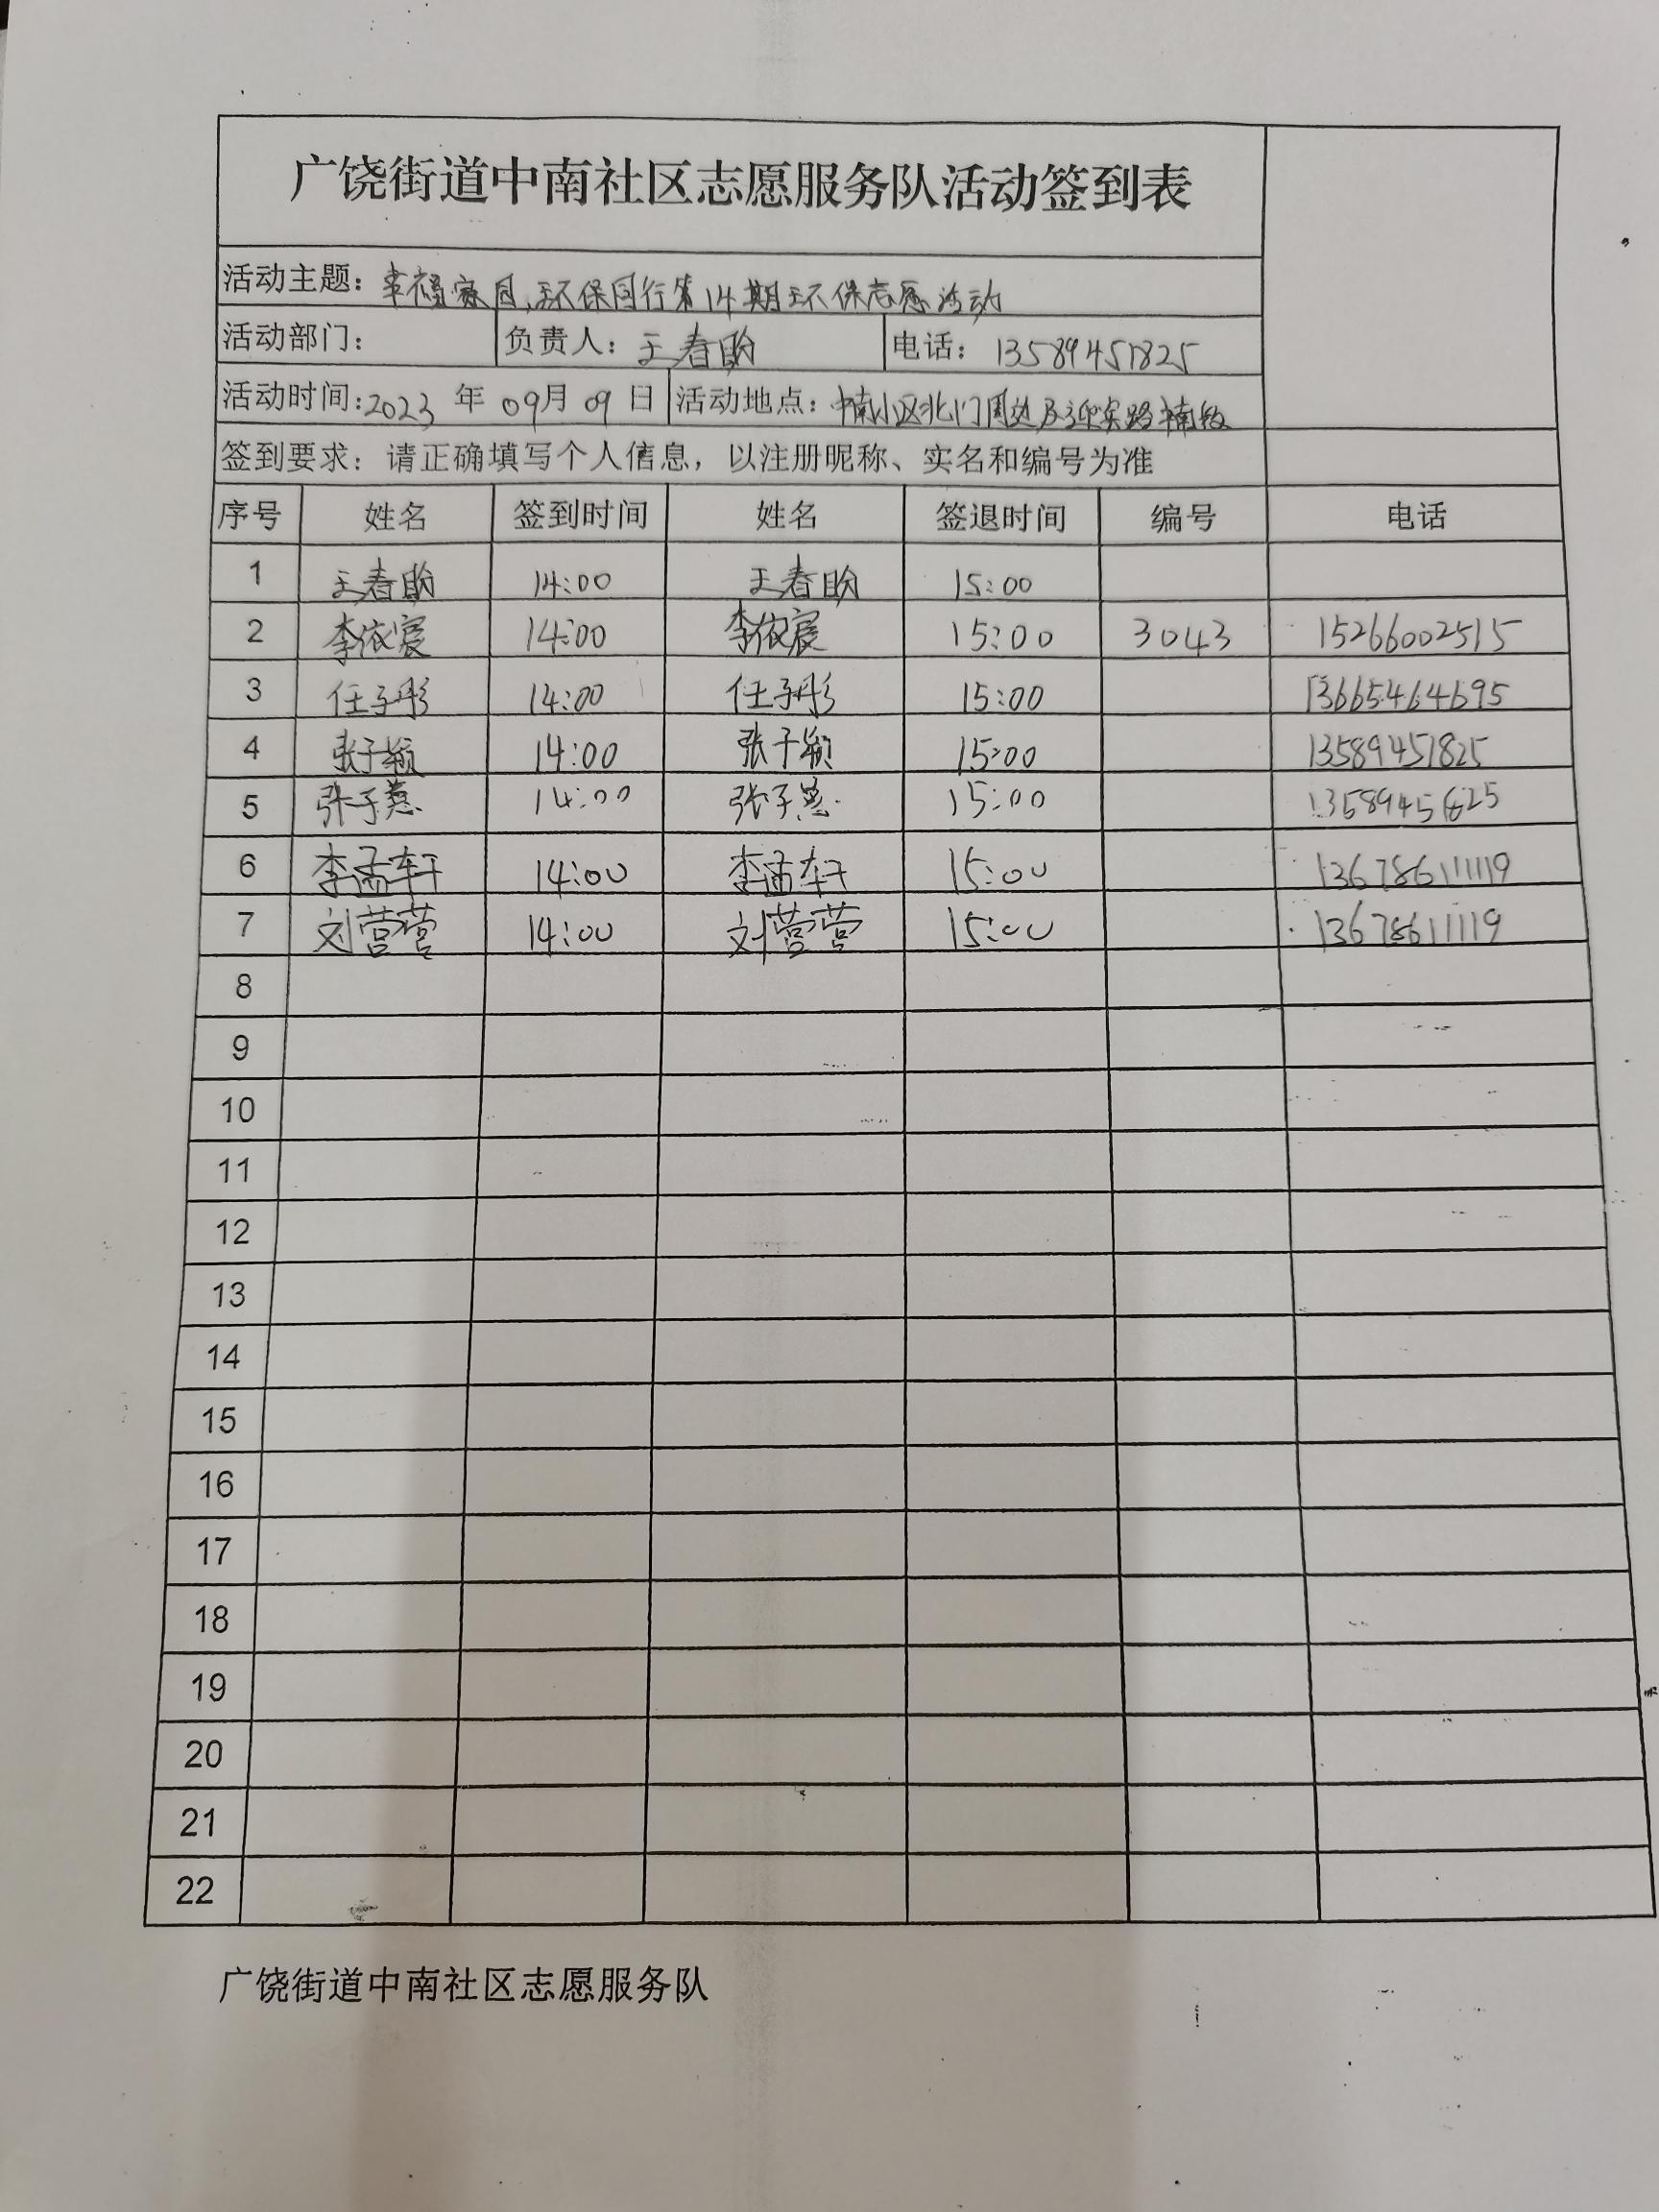 广饶街道中南社区志愿服务队活动签到表
活动主题：幸福家园，环保同行第14期环保志愿活动
活动部门： 负责人：王春盼 电话：13589451825
活动时间：2023年09月09日 活动地点：中南小区北门周边及迎宾路中南段
签到要求：请正确填写个人信息，以注册昵称、实名和编号为准
序号 姓名 签到时间 姓名 签退时间 编号 电话
1 王春盼 14:00 王春盼 15:00
2 李依宸 14:00 李依宸 15:00 3043 15266002515
3 任子彤 14:00 任子彤 15:00 13665464695
4 张子颖 14:00 张子颖 15:00 13589451825
5 张子慧 14:00 张子慧 15:00
6 李孟轩 14:00 李孟轩 15:00
7 刘营营 14:00 刘营营 15:00 13678611119
8
9
10
11
12
13
14
15
16
17
18
19
20
21
22
广饶街道中南社区志愿服务队